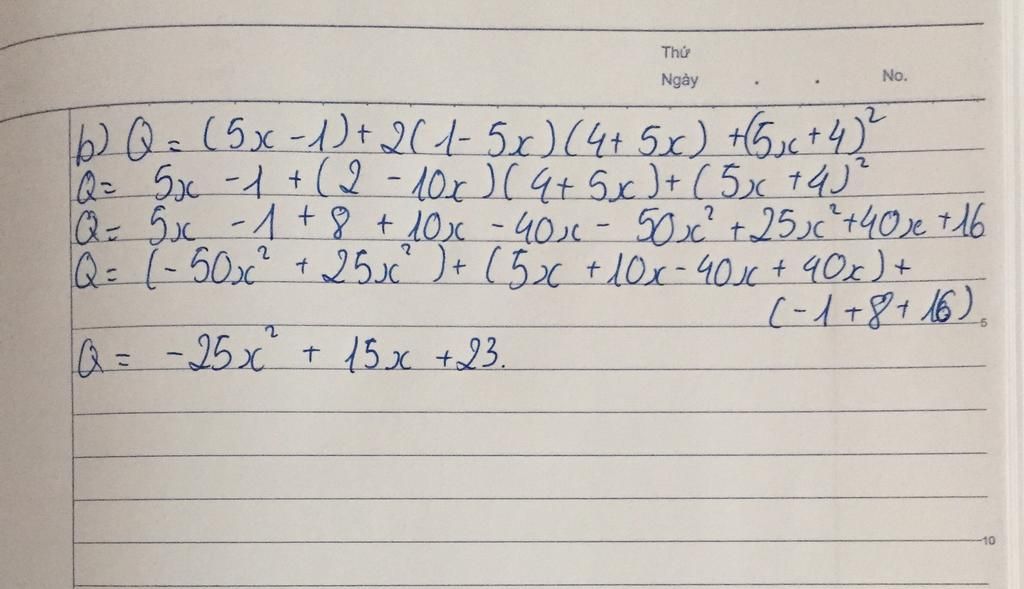 Thứ
Ngày . . No.
b) Q = (5x - 1) + 2(1 - 5x)(4 + 5x) + (5x + 4)²
Q = 5x - 1 + (2 - 10x)(4 + 5x) + (5x + 4)²
Q = 5x - 1 + 8 + 10x - 40x - 50x² + 25x² + 40x + 16
Q = (-50x² + 25x²) + (5x + 10x - 40x + 40x) +
(-1 + 8 + 16)
5
Q = -25x² + 15x + 23.
10